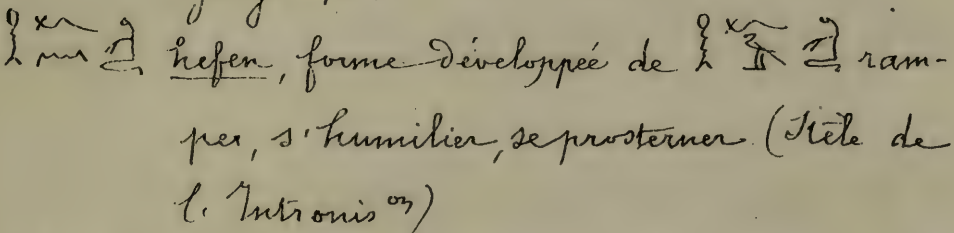 hefen, forme développée de ram-
per, s'humilier, se prosterner (Stèle de
l'Intronis^on)